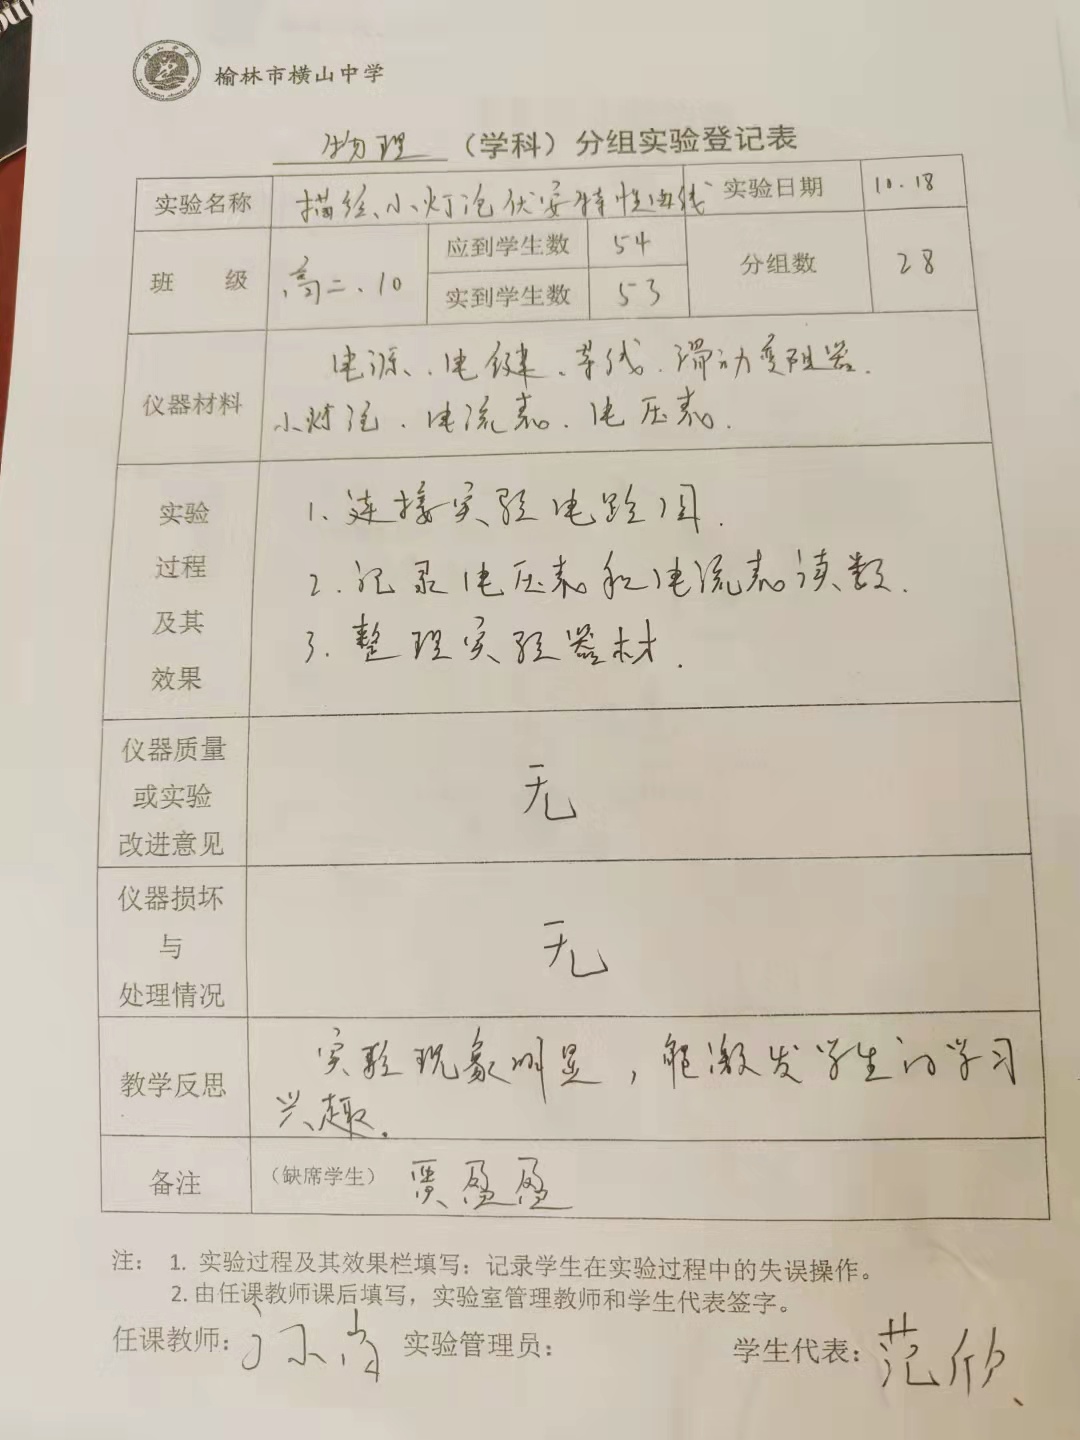 榆林市横山中学
物理 （学科）分组实验登记表
实验名称 描绘小灯泡伏安特性曲线 实验日期 10.18
班 级 高二、10 应到学生数 54 分组数 28
实到学生数 53
仪器材料 电源、电键、导线、滑动变阻器.
小灯泡、电流表、电压表.
实验
过程
及其
效果
1. 连接实验电路图.
2. 记录电压表和电流表读数.
3. 整理实验器材.
仪器质量
或实验
改进意见
无
仪器损坏
与
处理情况
无
教学反思 实验现象明显，能激发学生的学习
兴趣.
备注 （缺席学生） 贾盈盈
注： 1. 实验过程及其效果栏填写：记录学生在实验过程中的失误操作。
2. 由任课教师课后填写，实验室管理教师和学生代表签字。
任课教师： 实验管理员： 学生代表：范欣